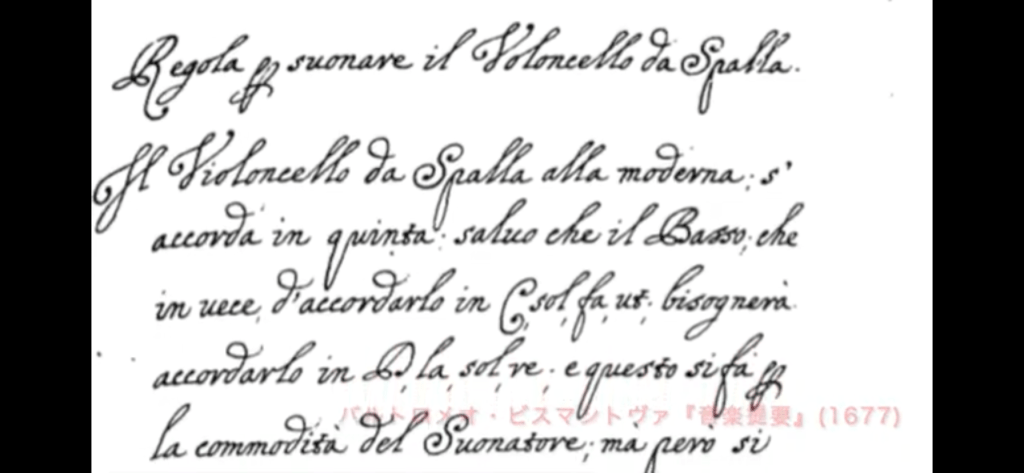 Regola ꝑ suonare il Violoncello da Spalla.
Il Violoncello da Spalla alla moderna; s'
accorda in quinta; saluo che il Basso; che
in uece, d'accordarlo in C, sol, fa, ut; bisognerà
accordarlo in D, la, sol, re; e questo si fà ꝑ
バルトロメオ・ビスマントヴァ『音楽提要』(1677)
la commodità del Suonatore; mà però si